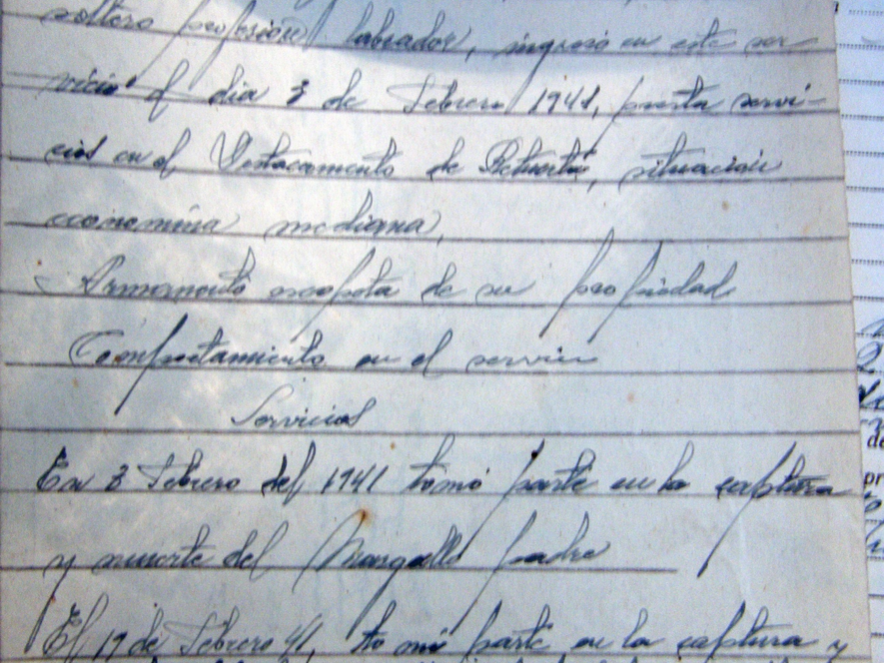 soltero profesión labrador, ingresó en este ser-
vicio el dia 3 de Febrero 1941, presta servi-
cios en el Destacamento de Retuerta, situación
economica mediana,
Armamento escopeta de su propiedad
Comportamiento en el servicio
Servicios
En 3 Febrero del 1941 tomó parte en la captura
y muerte del Margallo padre
El 17 de Febrero 41, tomó parte en la captura y